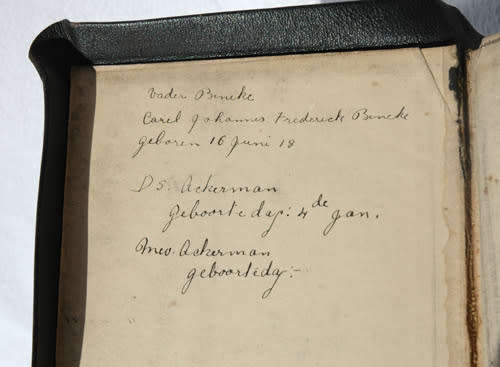 Vader Bineke
Carel Johannes Frederick Bineke
geboren 16 Juni 18
Ds. Ackerman
geboortedag: 4de Jan.
Mev. Ackerman
geboortedag:-